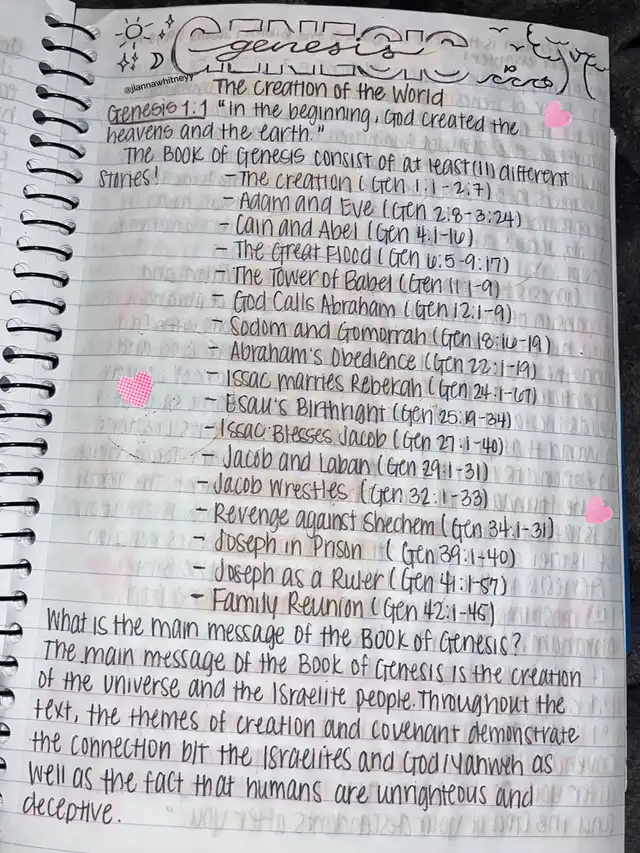 GENESIS
genesis
@jiannawhitneyy
The Creation of the World
Genesis 1:1 "In the beginning, God created the
heavens and the earth."
The Book of Genesis consist of at least (11) different
stories!
- The creation (Gen 1:1-2:7)
- Adam and Eve (Gen 2:8-3:24)
- Cain and Abel (Gen 4:1-16)
- The Great Flood (Gen 6:5-9:17)
- The Tower of Babel (Gen 11:1-9)
- God Calls Abraham (Gen 12:1-9)
- Sodom and Gomorrah (Gen 18:16-19)
- Abraham's Obedience (Gen 22:1-19)
- Issac marries Rebekah (Gen 24:1-67)
- Esau's Birthright (Gen 25:19-34)
- Issac Blesses Jacob (Gen 27:1-40)
- Jacob and Laban (Gen 29:1-31)
- Jacob Wrestles (Gen 32:1-33)
- Revenge against Shechem (Gen 34:1-31)
- Joseph in Prison (Gen 39:1-40)
- Joseph as a Ruler (Gen 41:1-57)
- Family Reunion (Gen 42:1-45)
What is the main message of the Book of Genesis?
The main message of the Book of Genesis is the creation
of the universe and the Israelite people. Throughout the
text, the themes of creation and covenant demonstrate
the connection b/t the Israelites and God/Yahweh as
well as the fact that humans are unrighteous and
deceptive.